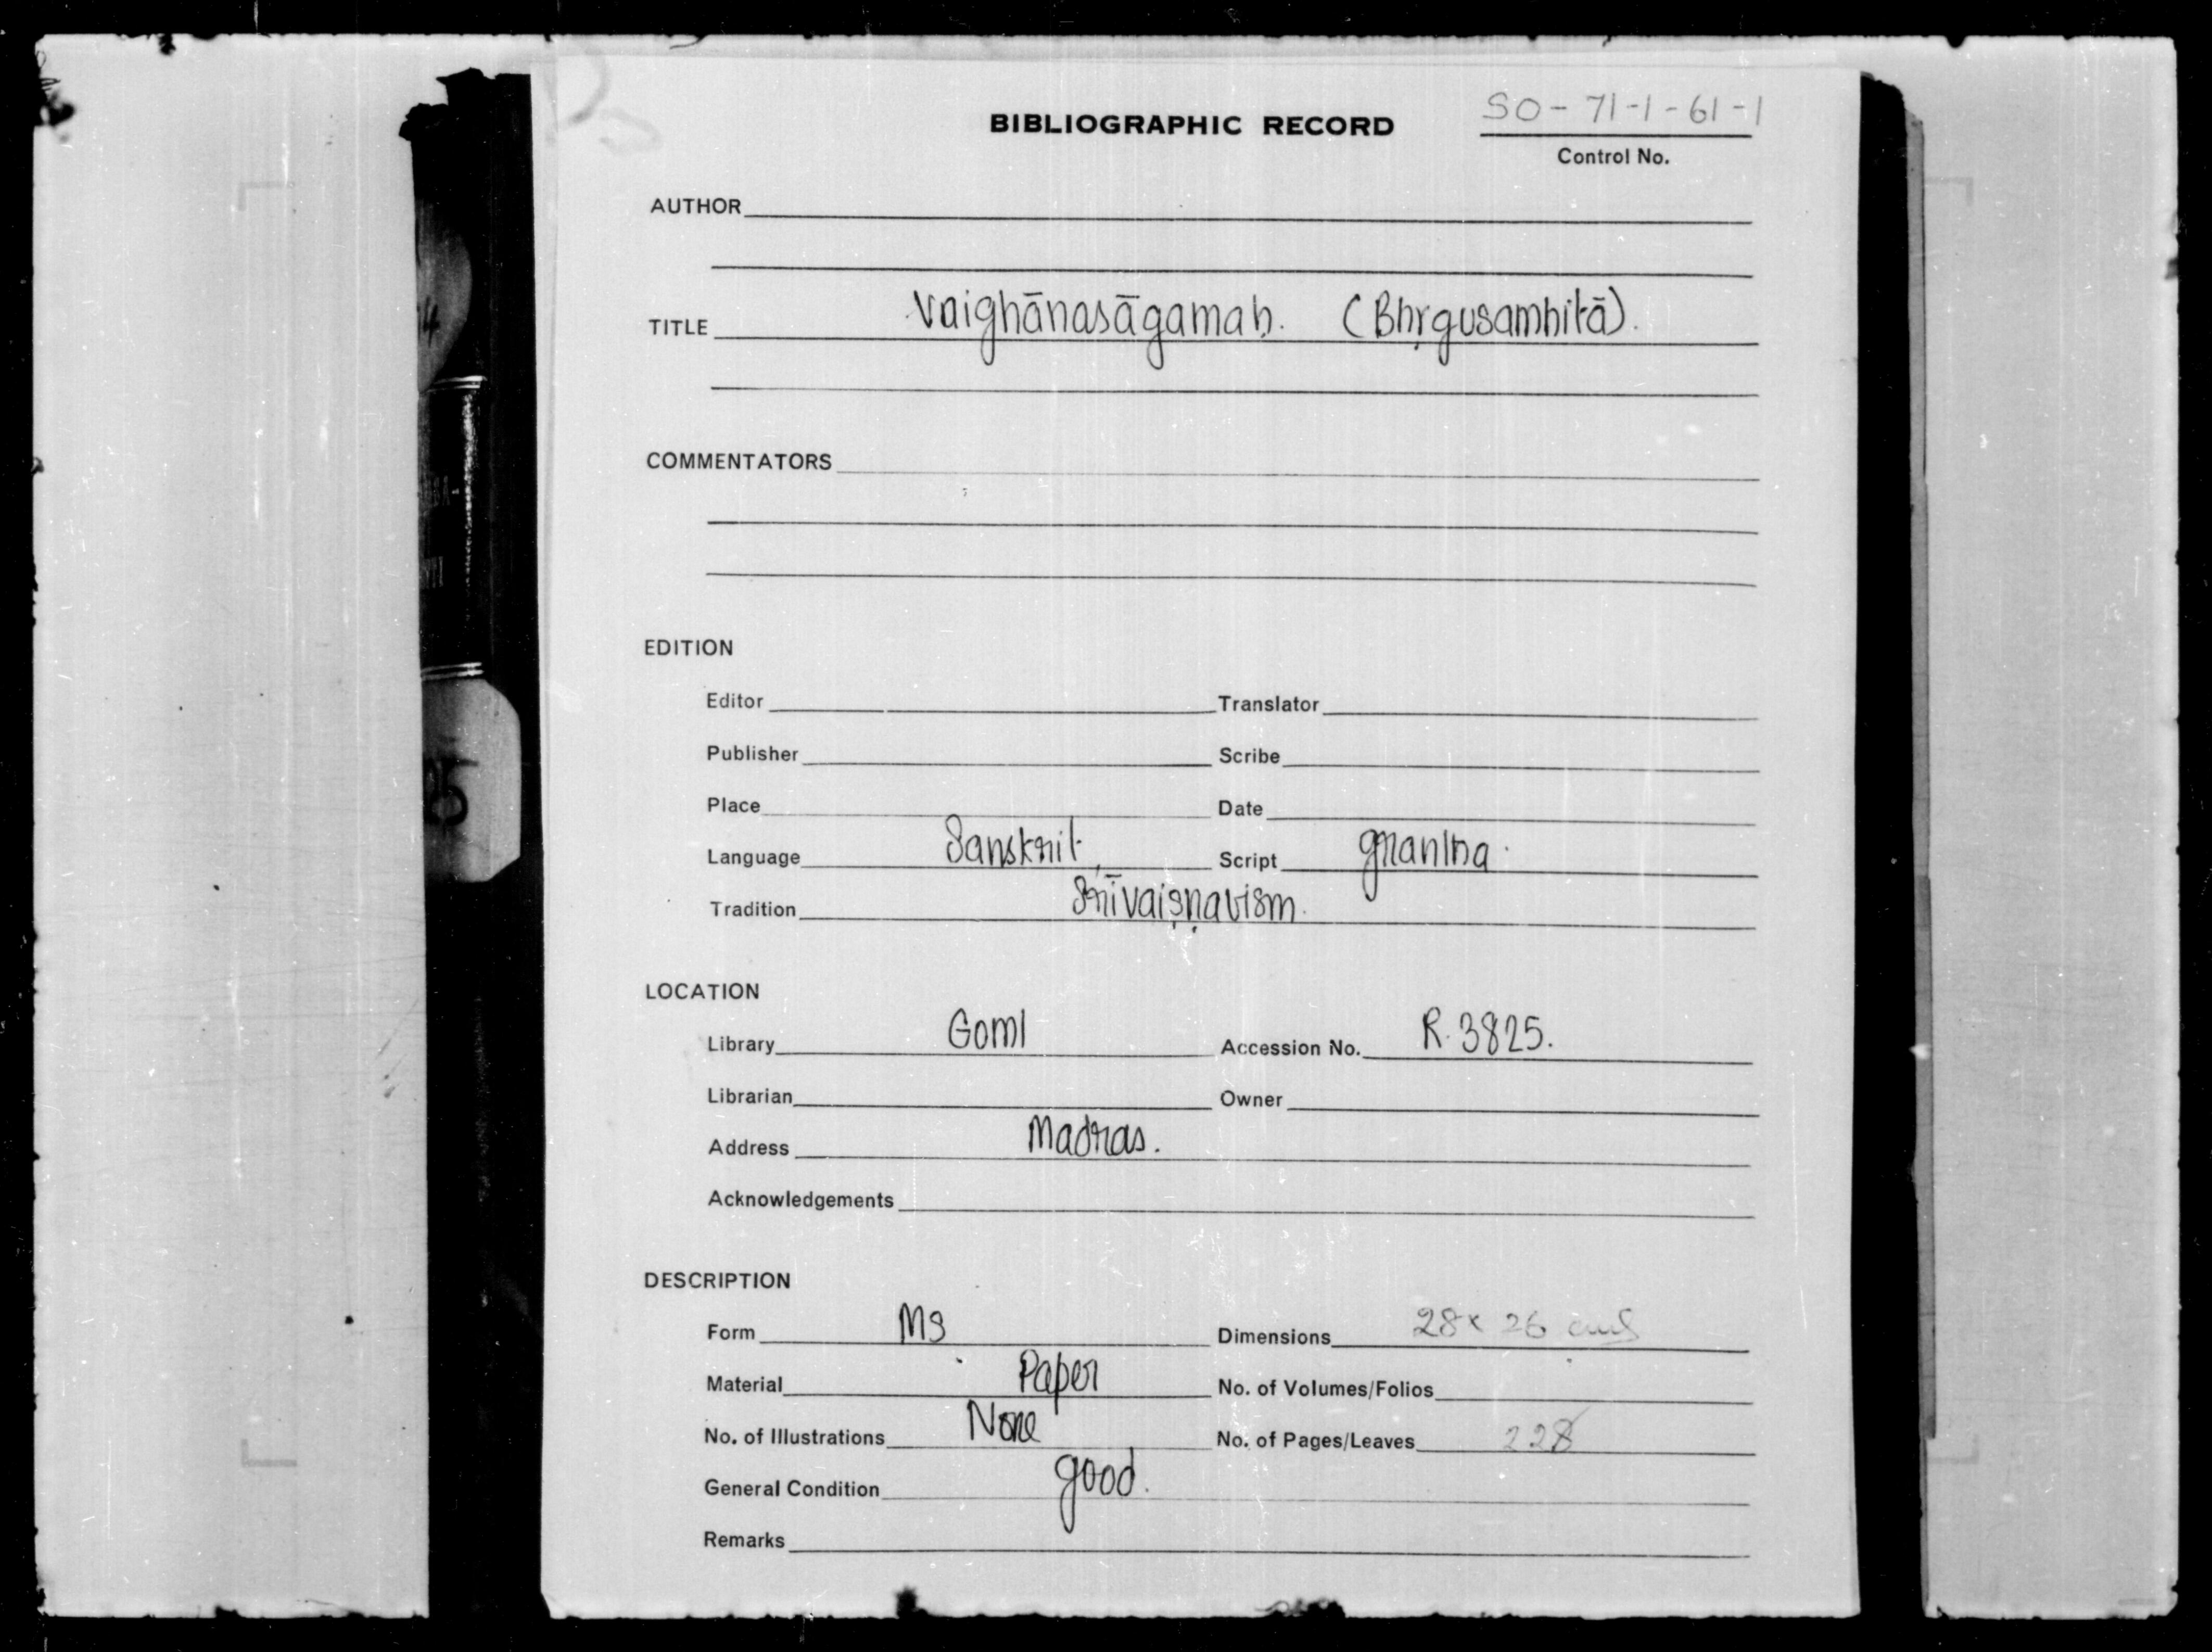 SO-71-1-61-1
BIBLIOGRAPHIC RECORD
Control No.
AUTHOR
TITLE Vaighānasāgamaḥ. (Bhṛgusamhitā).
COMMENTATORS
EDITION
Editor Translator
Publisher Scribe
Place Date
Language Sanskrit Script grantha.
Tradition Śrīvaiṣṇavism.
LOCATION
Library Goml Accession No. R.3825.
Librarian Owner
Address Madras.
Acknowledgements
DESCRIPTION
Form Ms Dimensions 28 x 26 cms
Material Paper No. of Volumes/Folios
No. of Illustrations None No. of Pages/Leaves 228
General Condition good.
Remarks